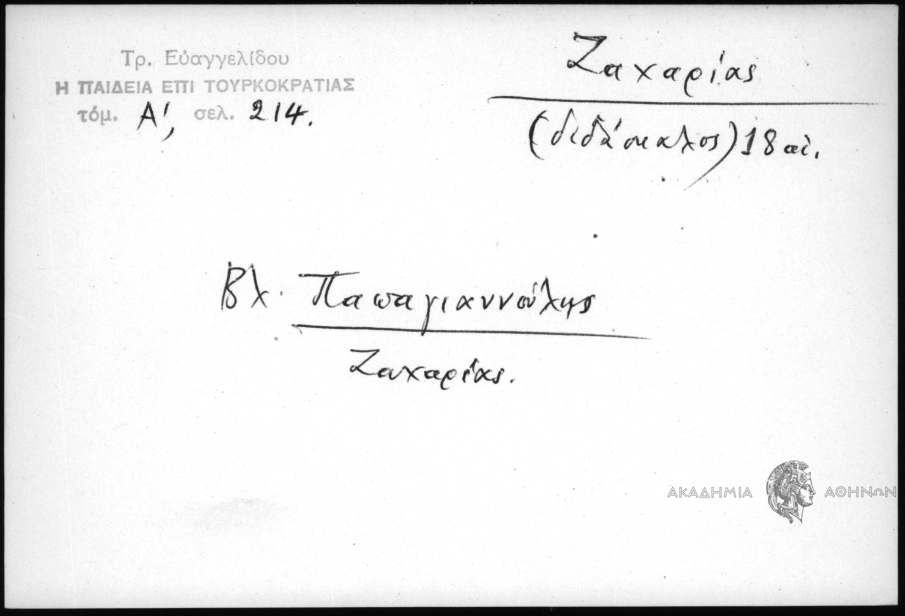 Τρ. Εὐαγγελίδου
Η ΠΑΙΔΕΙΑ ΕΠΙ ΤΟΥΡΚΟΚΡΑΤΙΑΣ
τόμ. Α', σελ. 214.
Ζαχαρίας
(διδάσκαλος) 18 αἰ.
Βλ. Παπαγιαννούλης
Ζαχαρίας.
ΑΚΑΔΗΜΙΑ ΑΘΗΝΩΝ